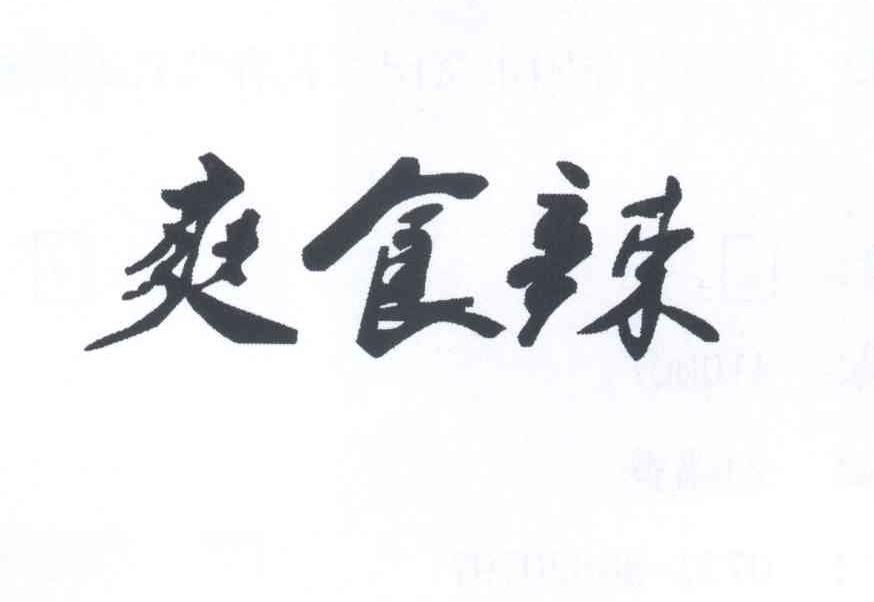 爽食辣